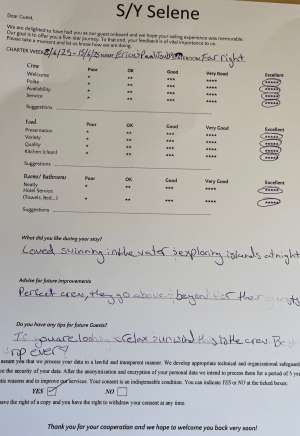 S/Y Selene
Dear Guest,
We are delighted to have had you as our guest onboard and we hope your sailing experience was memorable.
Our goal is to offer you a five-star journey. To that end, your feedback is of vital importance to us.
Please take a moment and let us know how we are doing.
CHARTER WEEK 8/6/25 - 15/6/25 NAME BEDROOM Far right
Crew Poor OK Good Very Good Excellent
Welcome * ** *** **** *****
Polite * ** *** **** *****
Availability * ** *** **** *****
Service * ** *** **** *****
Suggestions
Food Poor OK Good Very Good Excellent
Presentation * ** *** **** *****
Variety * ** *** **** *****
Quality * ** *** **** *****
Kitchen (clean) * ** *** **** *****
Suggestions
Rooms/ Bathrooms Poor OK Good Very Good Excellent
Neatly * ** *** **** *****
Hotel Service
(Towels, Bed...) * ** *** **** *****
Suggestions
What did you like during your stay?
Loved swimming in the water & exploring islands at night
Advise for future improvements
Perfect crew, they go above & beyond for their guests
Do you have any tips for future Guests?
relax crew. Best
trip ever!
assure you that we process your data in a lawful and transparent manner. We develop appropriate technical and organisational safeguards
the security of your data. After the anonymization and encryption of your personal data we intend to process them for a period of 5 years
reasons and to improve our services. Your consent is an indispensable condition. You can indicate YES or NO at the ticked boxes:
YES NO
have the right of a copy and you have the right to withdraw your consent at any time.
Thank you for your cooperation and we hope to welcome you back very soon!